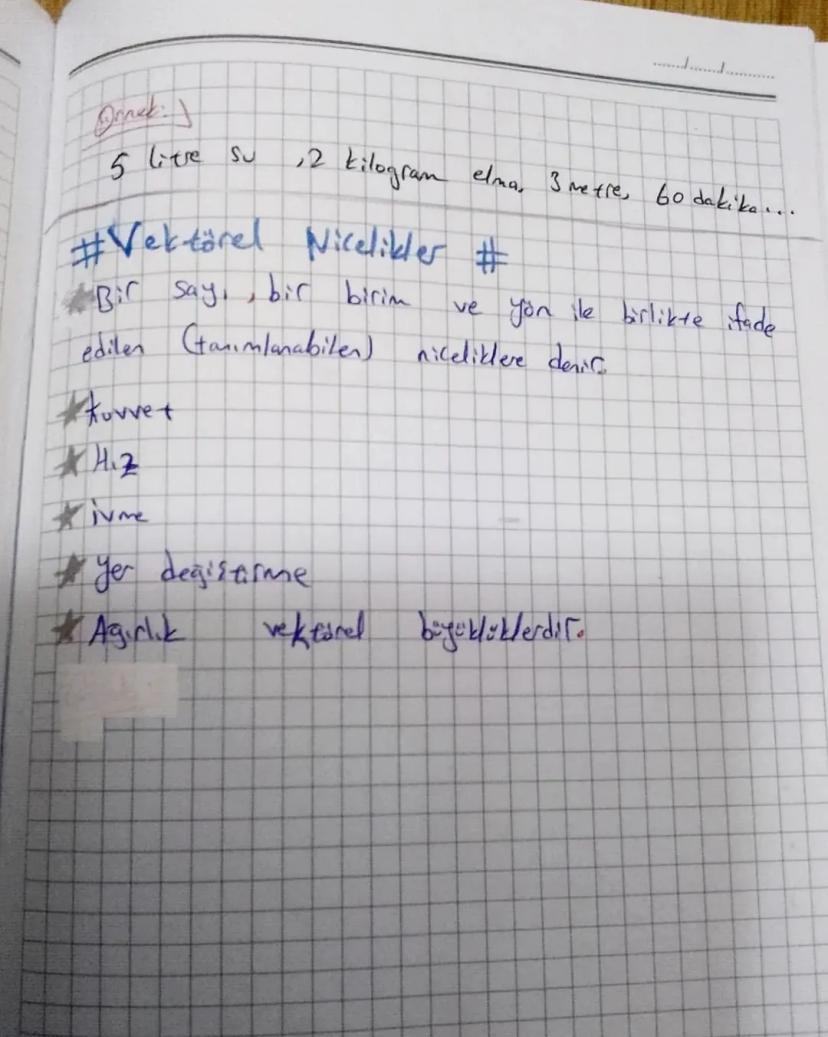 Örnek:
5 litre su , 2 kilogram elma, 3 metre, 60 dakika...
#Vektörel Nicelikler #
Bir sayı, bir birim ve yön ile birlikte ifade
edilen (tanımlanabilen) niceliklere denir.
kuvvet
Hız
ivme
Yer değiştirme
Ağırlık vektörel büyüklüklerdir.